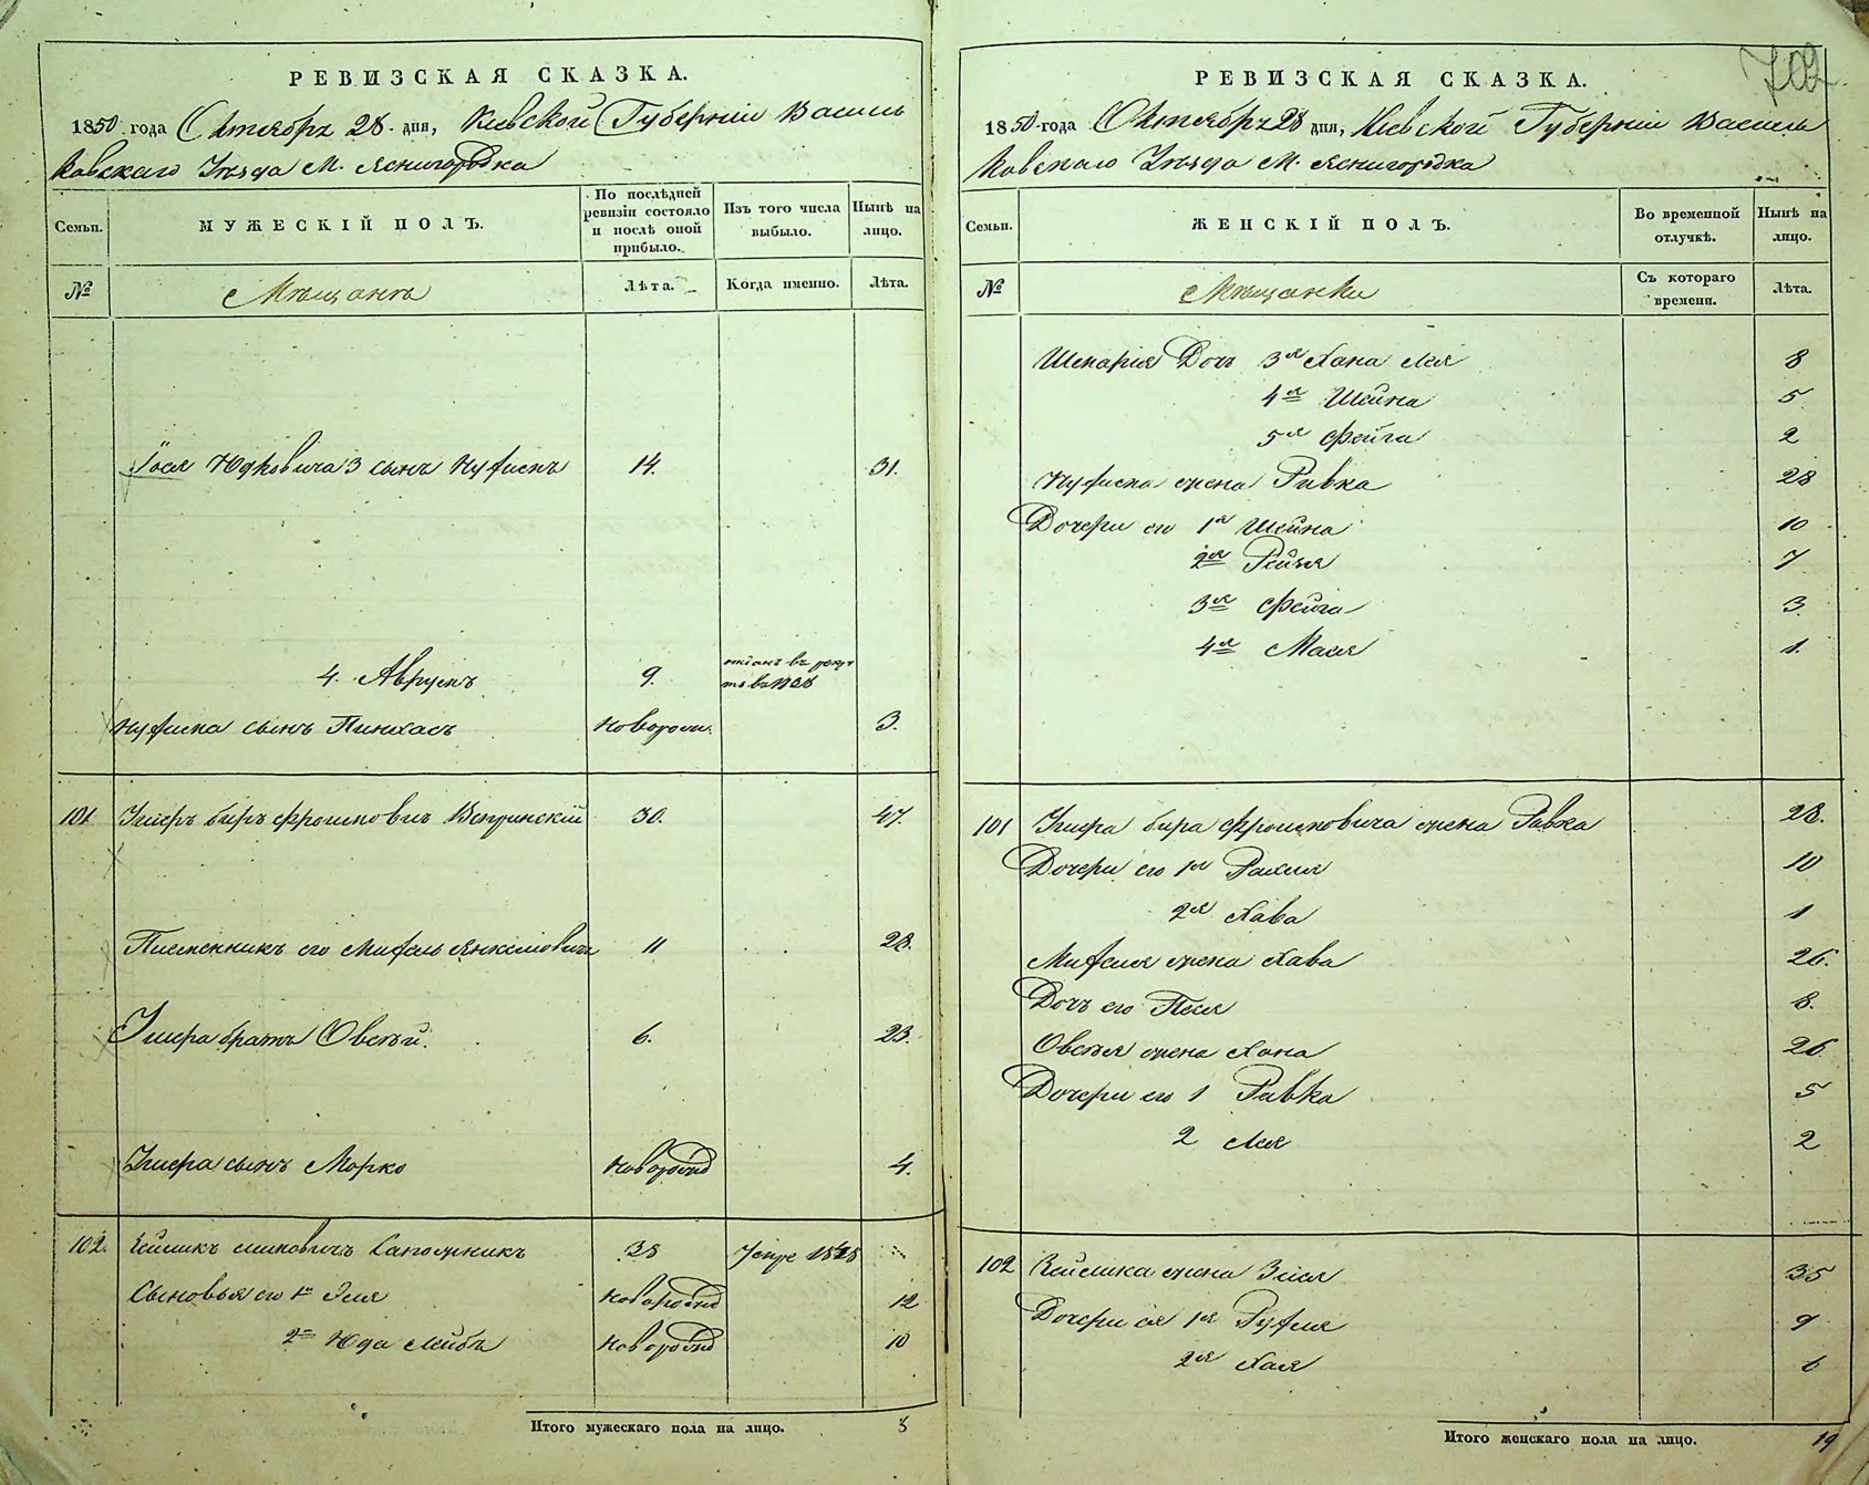 РЕВИЗСКАЯ СКАЗКА.
1850 года Октября 28 дня, Киевской Губернiи Василь
ковскаго Уѣзда М. Ясногородка
Семьи.
МУЖЕСКІЙ ПОЛЪ.
По послѣдней ревизіи состояло и послѣ оной прибыло.
Изъ того числа выбыло.
Нынѣ на лицо.
№
Мѣщане
Лѣта.
Когда именно.
Лѣта.
Іося Юдковича 3 сынъ Нусинъ 14. 31.
4. Аврумъ 9. отданъ въ рекру
Нусина сынъ Пинхасъ Новорож. 3.
101 Умеръ Беръ Фроимовичъ 30. 47.
Племенникъ его Янкелевичъ 11 28.
братъ Овсѣй. 6. 23.
сынъ Морко Новорожд 4.
102. Сапожникъ 38 Умре 1848
Сыновья его 1й Эля Новорожд 12
2й Юда Лейбъ Новорожд 10
Итого мужескаго пола на лицо. 8
702
РЕВИЗСКАЯ СКАЗКА.
1850 года Октября 28 дня, Киевской Губернiи Василь
ковскаго Уѣзда М. Ясногородка
Семьи.
ЖЕНСКІЙ ПОЛЪ.
Во временной отлучкѣ.
Нынѣ на лицо.
№
Мѣщанки
Съ котораго времени.
Лѣта.
Дочь 3я Хана Лея 8
4я Шейна 5
5я Фейга 2
Нусина жена Ривка 28
Дочери его 1я Шейна 10
2я Рейзя 7
3я Фейга 3.
4я Мася 1.
101 Бера Фроимовича жена Ривка 28.
Дочери его 1я Рахля 10
2я Хава 1
жена Хава 26.
Дочь его Песя 8.
Овсѣя жена Хана 26
Дочери его 1 Ривка 5
2 Лея 2
102 жена Зися 35
Дочери ея 1я Рухля 9
2я Хая 6
Итого женскаго пола на лицо. 19